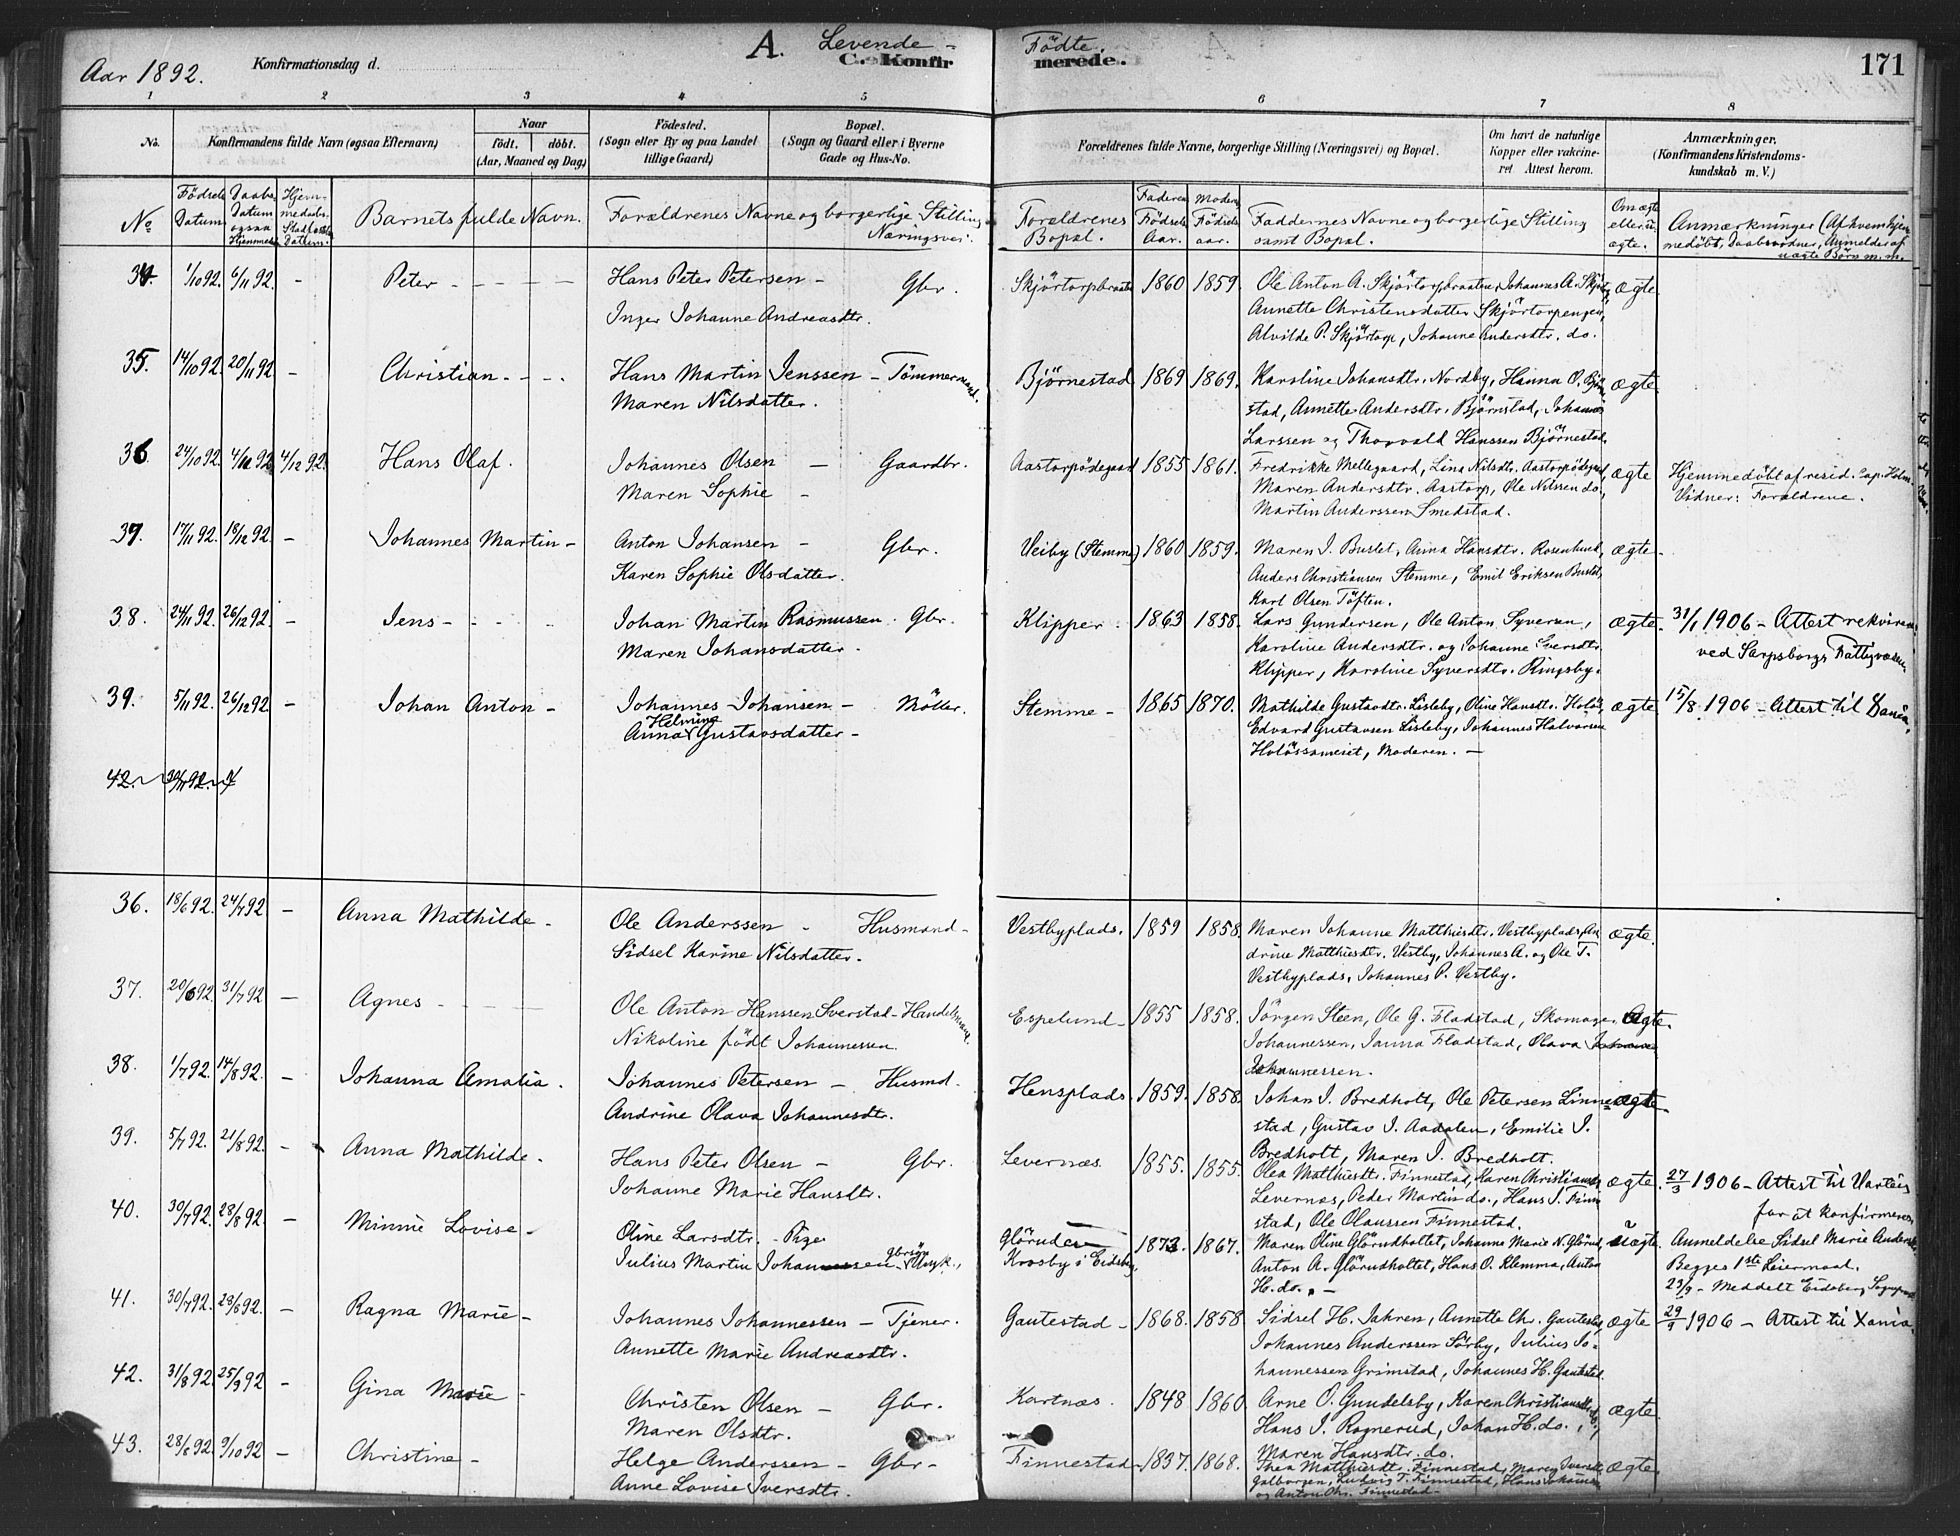 A. Levende - Fødte.
171
Aar 1892.
Konfirmationsdag d.
C. Konfir merede.
1 2 3 4 5 6 7 8
No.
Konfirmandens fulde Navn (ogsaa Efternavn)
Naar
født. døbt.
(Aar, Maaned og Dag)
Fødested.
(Sogn eller By og paa Landet
tillige Gaard)
Bopæl.
(Sogn og Gaard eller i Byerne
Gade og Hus-No.
Forældrenes fulde Navne, borgerlige Stilling (Næringsvei) og Bopæl.
Om havt de naturlige
Kopper eller vakcine-
ret Attest herom.
Anmærkninger.
(Konfirmandens Kristendoms-
kundskab m. V.)
No
Fødsels Datum
Daabs Datum ogsaa Hjemmed.
Barnets fulde Navn.
Forældrenes Navne og borgerlige Stilling
Næringsvei.
Forældrenes
Bopæl.
Faderens
Fødsels
Aar.
Moders
Fødsels
aar.
Faddernes Navne og borgerlige Stilling
samt Bopæl.
Om ægte
eller u-
ægte.
Anmærkninger (Af hvem hjem-
medøbt, Daabsvidner, Anmelder af
uægte Børn m. m.
34. 1/10 92. 6/11 92. - Peter - - - - Hans Peter Petersen - Gbr. Skjörtorpbraaten 1860 1859. Ole Anton A. Skjörtorpbraaten, Johannes A. ægte
Inger Johanne Andreasdtr. Annette Christensdatter Skjörtorpengen,
Alvilde P. Skjörtorp, Johanne Andersdtr. do.
35. 14/10 92. 20/11 92. - Christian - - - Hans Martin Jenssen - Tömmermand. Bjørnestad 1869 1869. Karoline Johansdtr. Nordby, Hanna O. Bjørn ægte
Maren Nilsdatter. stad, Annette Andersdtr. Bjørnstad, Johannes
Larssen og Thorvald Hanssen Bjørnestad.
36. 24/10 92. 4/12 92. 4/12 92. Hans Olaf. Johannes Olsen - Gaardbr. Aastorpödegaard 1855 1861. Fredrikke Mellegaard, Lina Nilsdtr. Aastorpödegaard, ægte Hjemmedöbt af resid. Cap. Holm.
Maren Sophie - Maren Andersdtr. Aastorp, Ole Nilssen do., Vidner: Forældrene.
Martin Anderssen Smedstad.
37. 17/11 92. 18/12 92. - Johannes Martin - Anton Johansen - Gbr. Veiby (Stemme) 1860 1859. Maren J. Buslet, Anna Hansdtr. Rosenlund, ægte.
Karen Sophie Olsdatter. Anders Christiansen Stemme, Emil Eriksen Buslet,
Karl Olsen Töften.
38. 24/11 92. 26/12 92. - Jens - - - - Johan Martin Rasmussen. Gbr. Klipper. 1863 1858. Lars Gundersen, Ole Anton Syversen, ægte. 31/1 1906 - Attest rekvirer
Maren Johansdatter. Karoline Andersdtr. og Johanne Eversdtr. ved Sarpsborgs Fattigvæsen
Klipper, Karoline Syversdtr. Ringsby.
39. 5/11 92. 26/12 92. - Johan Anton - Johannes Johansen - Möller. Stemme - 1865 1870. Mathilde Gustavdtr. Lisleby, Oline Hansdtr. ægte 15/8 1906 - Attest til
Anna Helmine Gustavsdatter - Edvard Gustavsen Lisleby, Johannes Halvorsen
Holössameiet, Moderen. -
42. 30/11 92.
36. 18/6 92. 24/7 92. - Anna Mathilde - Ole Anderssen - Husmand - Vestbyplads. 1859 1858. Maren Johanne Matthisdtr. Vestbyplads, An ægte.
Sidsel Karine Nilsdatter. drine Matthisdtr. Vestby, Johannes A. og Ole T.
Vestbyplads, Johannes P. Vestby.
37. 20/6 92. 31/7 92 - Agnes - - - Ole Anton Hanssen Sverstad - Handelsmand. Espelund - 1855 1858. Jörgen Steen, Ole G. Fladstad, Skomager ægte.
Nikoline född Johannessen. Johannessen, Janna Fladstad, Olava
Johannessen.
38. 1/7 92. 14/8 92. - Johanna Amalia. Johannes Petersen - Husmd. Hensplads. 1859. 1858. Johan J. Bredholt, Ole Petersen Linne ægte
Andrine Olava Johannesdtr. stad, Gustav J. Aadalen, Emilie J.
Bredholt, Maren J. Bredholt.
39. 5/7 92. 21/8 92. - Anna Mathilde - Hans Peter Olsen - Gbr. Levernæs. 1855. 1855. Olea Matthisdtr. Finnestad, Karen Christiansd. ægte. 27/3 1906 - Attest til Varteig
Johanne Marie Hansdtr. Levernæs, Peder Martin do., Hans J. Finne for at konfirmeres
stad, Ole Olaussen Finnestad.
40. 30/7 92. 28/8 92. - Minnie Lovise - Oline Larsdtr. - Pige Glörud 1873. 1867. Maren Oline Glörudholtet, Johanne Marie N. Glörud, uægte. Anmeldelse Sidsel Marie Anders
Julius Martin - Ungk., Krosby i Eidsberg Anton A. Glörudholtet, Hans O. Klemma, Anton Begges 1ste Leiermaal.
H. do. - 23/9 - Meddelt Eidsberg Sogne
41. 30/7 92. 28/8 92. - Ragna Marie - Johannes Johannessen - Tjener. Gautestad - 1868. 1858 Sidsel H. Jahren, Annette Chr. Gautestad, ægte 29/9 1906 - Attest til Xania.
Annette Marie Andreasdtr. Johannes Anderssen Sörby, Julius Jo-
hannessen Grimstad, Johannes H. Gautestad.
42. 31/8 92. 25/9 92 - Gina Marie - Christen Olsen - Gbr. Kartnæs. 1848 1860 Arne O. Gundelsby, Karen Christiansdtr. ægte.
Maren Olsdtr. Hans J. Rognerud, Johan H. do.,
Maren Hansdtr. do.
43. 28/8 92. 9/10 92 - Christine - Helge Anderssen - Gbr - Finnestad - 1837. 1868. Thea Matthisdtr. Finnestad, Maren Iversdtr. ægte.
Anne Lovise Iversdtr. Galborgen, Ludvig T. Finnestad, Hans Johannes
og Anton Chr. Finnestad -